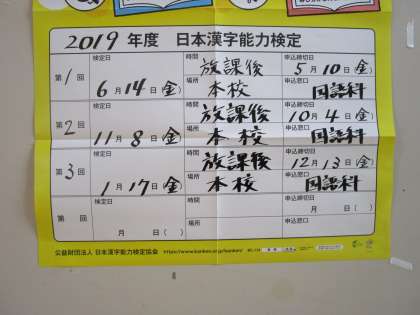 2019 年度 日本漢字能力検定
検定日 時間 放課後 申込締切日 5月10日(金)
第1回 6月14日(金) 場所 本校 申込窓口 国語科
検定日 時間 放課後 申込締切日 10月4日(金)
第2回 11月8日(金) 場所 本校 申込窓口 国語科
検定日 時間 放課後 申込締切日 12月13日(金)
第3回 1月17日(金) 場所 本校 申込窓口 国語科
検定日 時間 申込締切日 月 日( )
第 回 月 日( ) 場所 申込窓口
公益財団法人 日本漢字能力検定協会